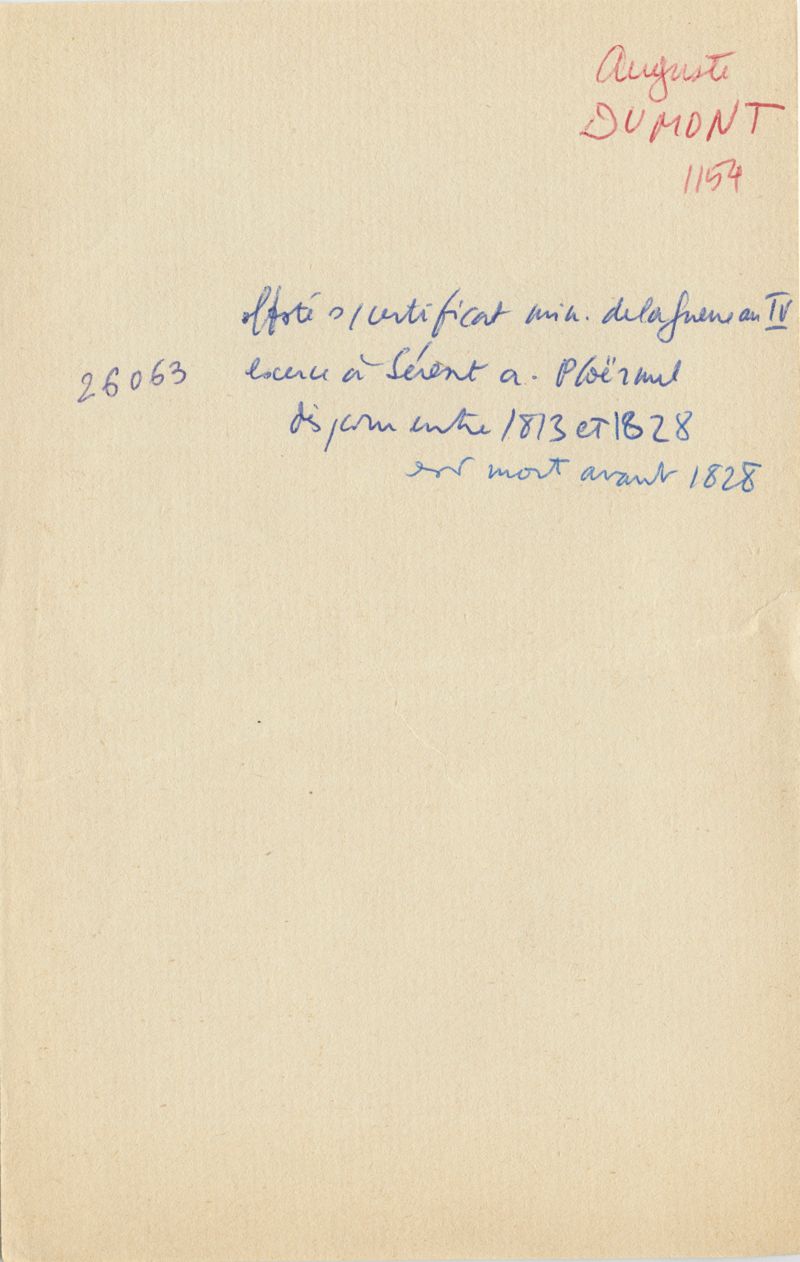 Auguste
DUMONT
1154
s/certificat min. de la guerre an IV
26063 exerce à Sérent a. Ploërmel
disparu entre 1813 et 1828
est mort avant 1828